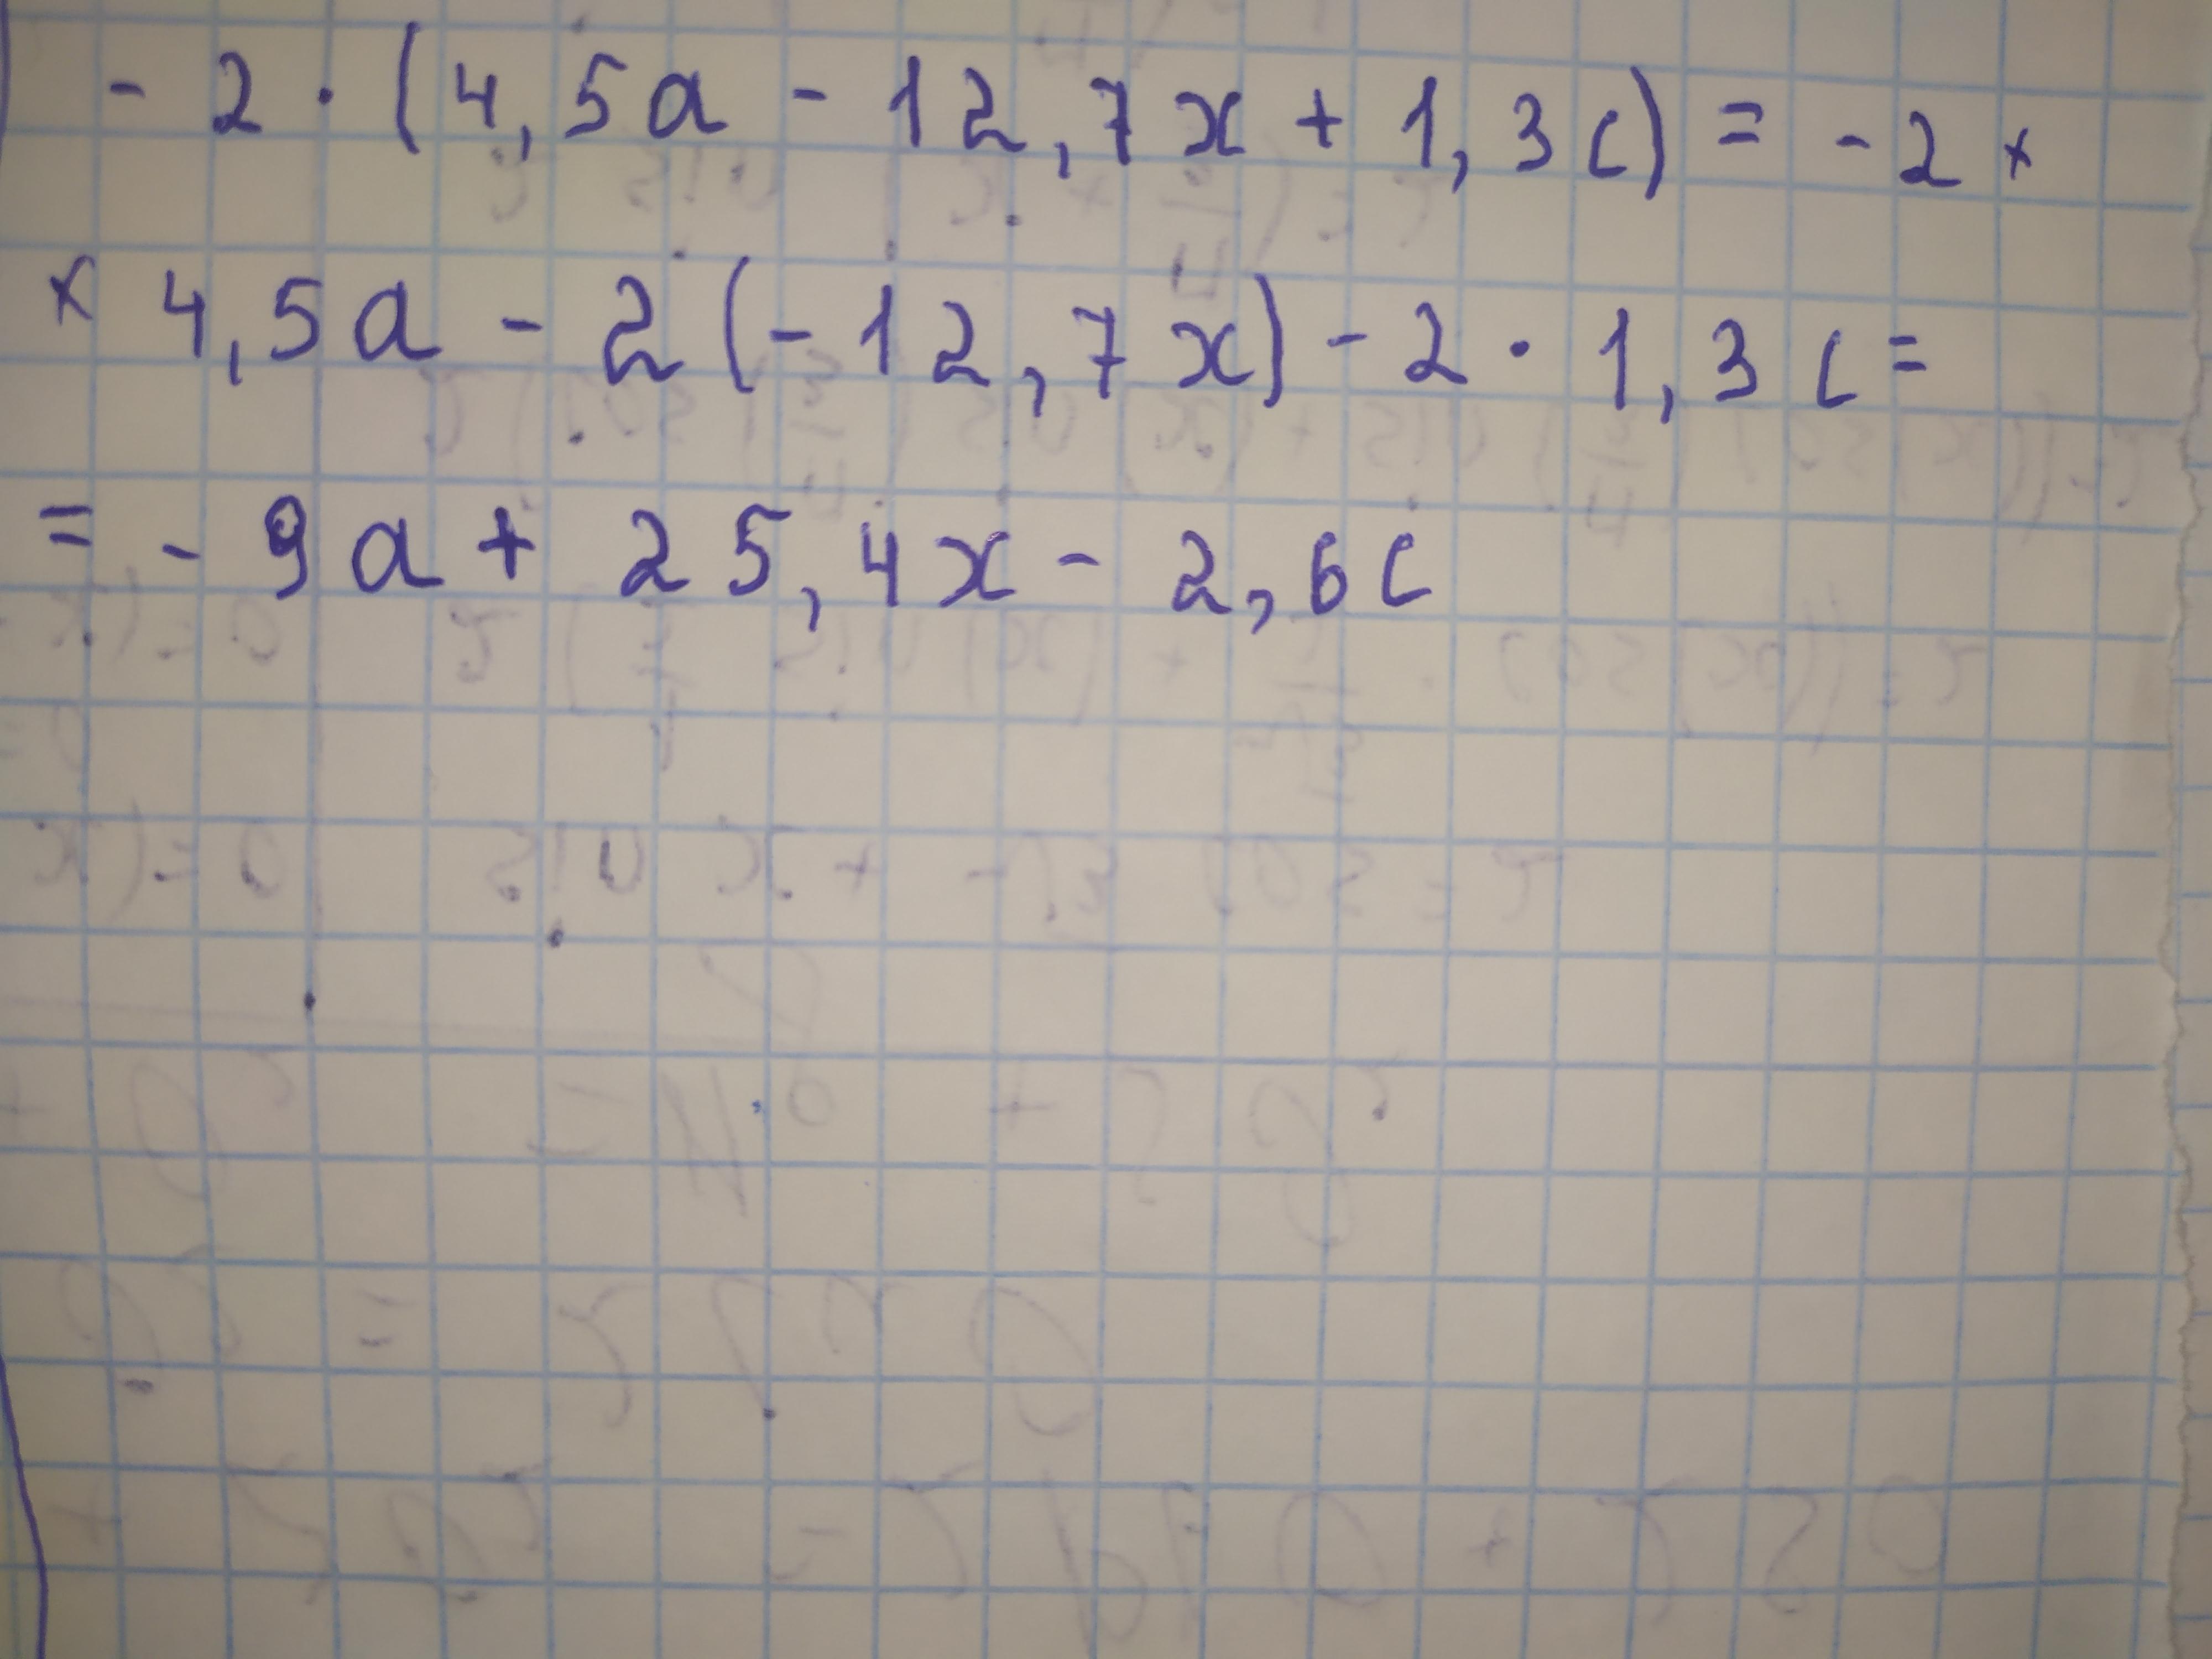 - 2 · (4,5a - 12,7x + 1,3c) = - 2 ×
× 4,5a - 2(-12,7x) - 2 · 1,3c =
= - 9a + 25,4x - 2,6c